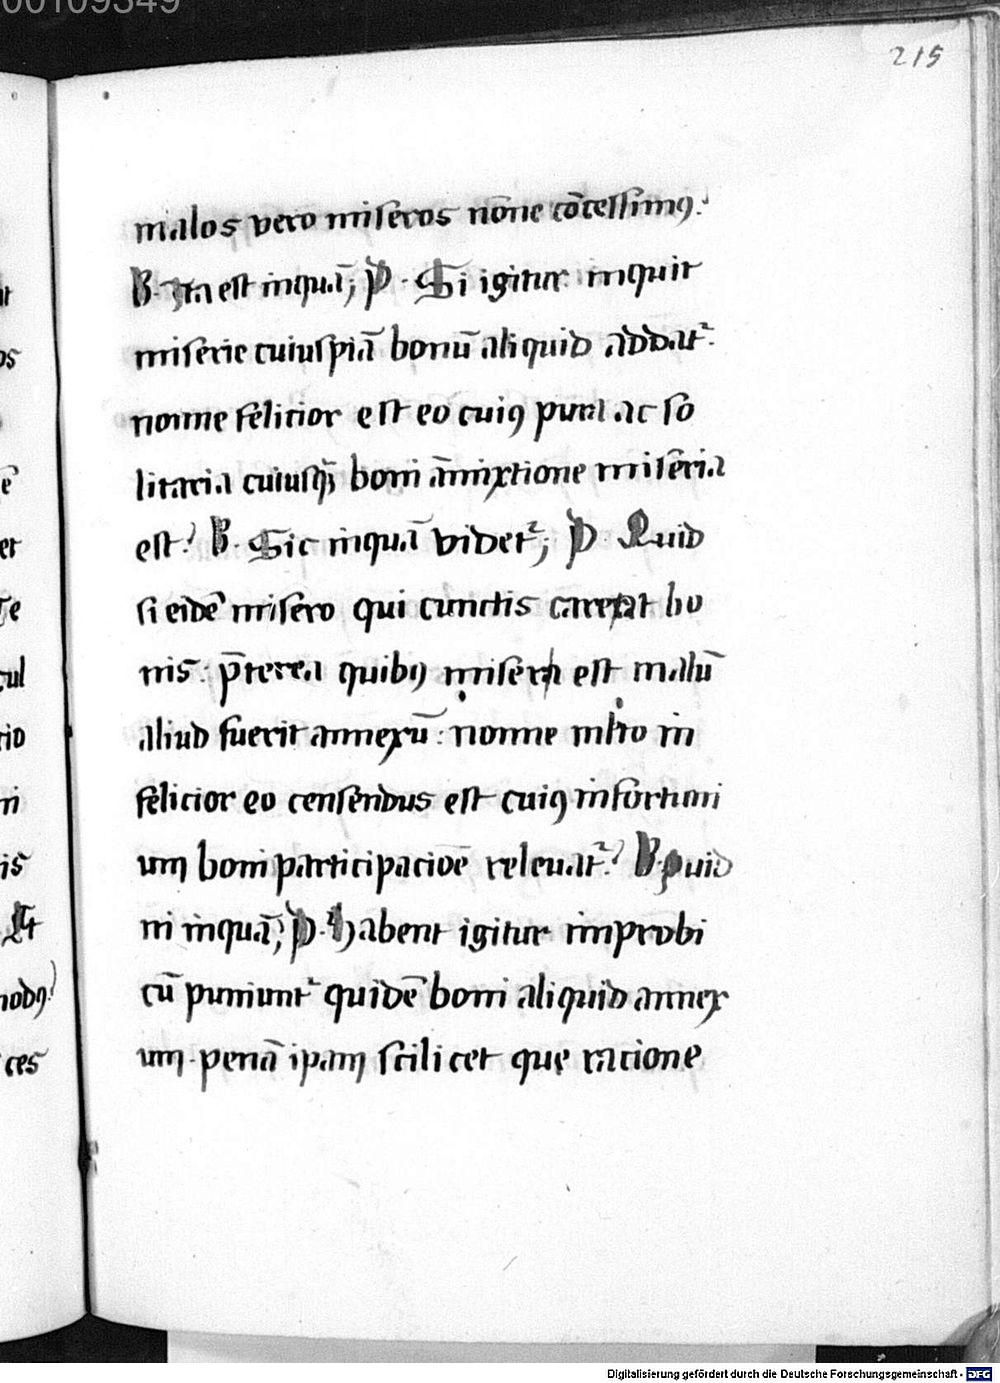 00109349
215
malos vero miseros nōne cōcessimꝰ?
B. Ita est inquā; P. Si igitur inquit
miserie cuiuspiā bonū aliquid addatᷣ.
nonne felicior est eo cuiꝰ pura ac so
litaria cuiusqꝫ boni āmixtione miseria
est? B. Sic inquā videtᷣ; P. Quid
si eidē misero qui cunctis careat bo
nis: p̄terea quibꝰ miser est malū
aliud fuerit annexū: nonne mlto in
felicior eo censendus est cuiꝰ infortuni
um boni participacioē releuatᷣ? B. Quid
ni inquā; P. Habent igitur improbi
cū puniuntᷣ quidē boni aliquid annex
um. penā ipam scilicet quę racione
er
ul
is
Et
modꝰ?
ces
Digitalisierung gefördert durch die Deutsche Forschungsgemeinschaft - DFG